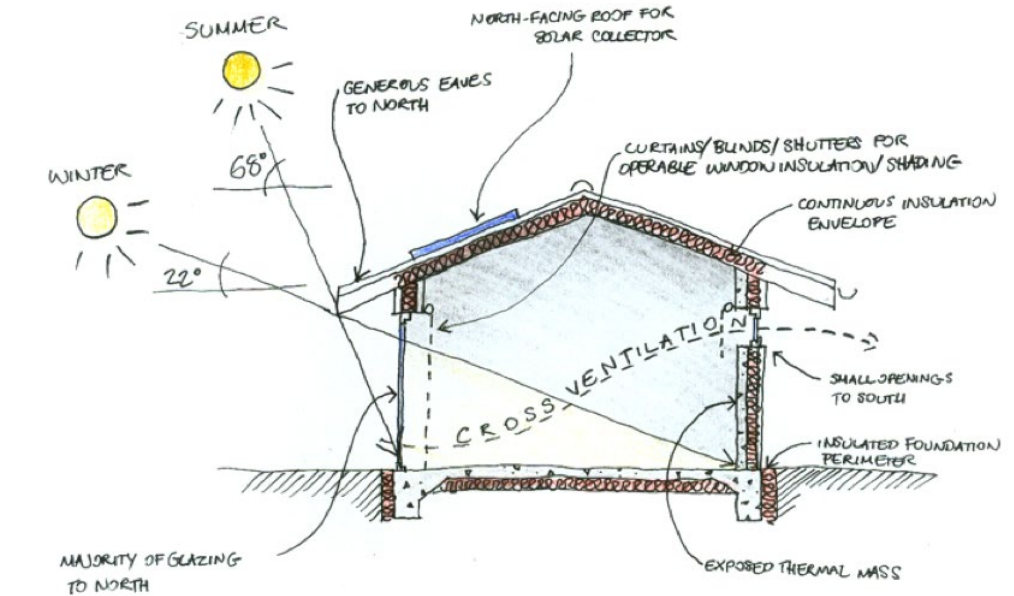 SUMMER
NORTH-FACING ROOF FOR
SOLAR COLLECTOR
GENEROUS EAVES
TO NORTH
68°
CURTAINS/BLINDS/SHUTTERS FOR
OPERABLE WINDOW INSULATION/SHADING
WINTER
CONTINUOUS INSULATION
ENVELOPE
22°
CROSS VENTILATION
SMALL OPENINGS
TO SOUTH
INSULATED FOUNDATION
PERIMETER
MAJORITY OF GLAZING
TO NORTH
EXPOSED THERMAL MASS